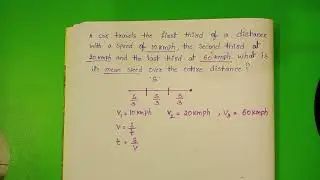 A car travels the first third of a distance
with a speed of 10 kmph, the second third at
20 kmph and the last third at 60 kmph. what is
its mean speed over the entire distance?
S
S/3 S/3 S/3
V₁ = 10 kmph V₂ = 20 kmph, V₃ = 60 kmph
V = S/t
t = S/V